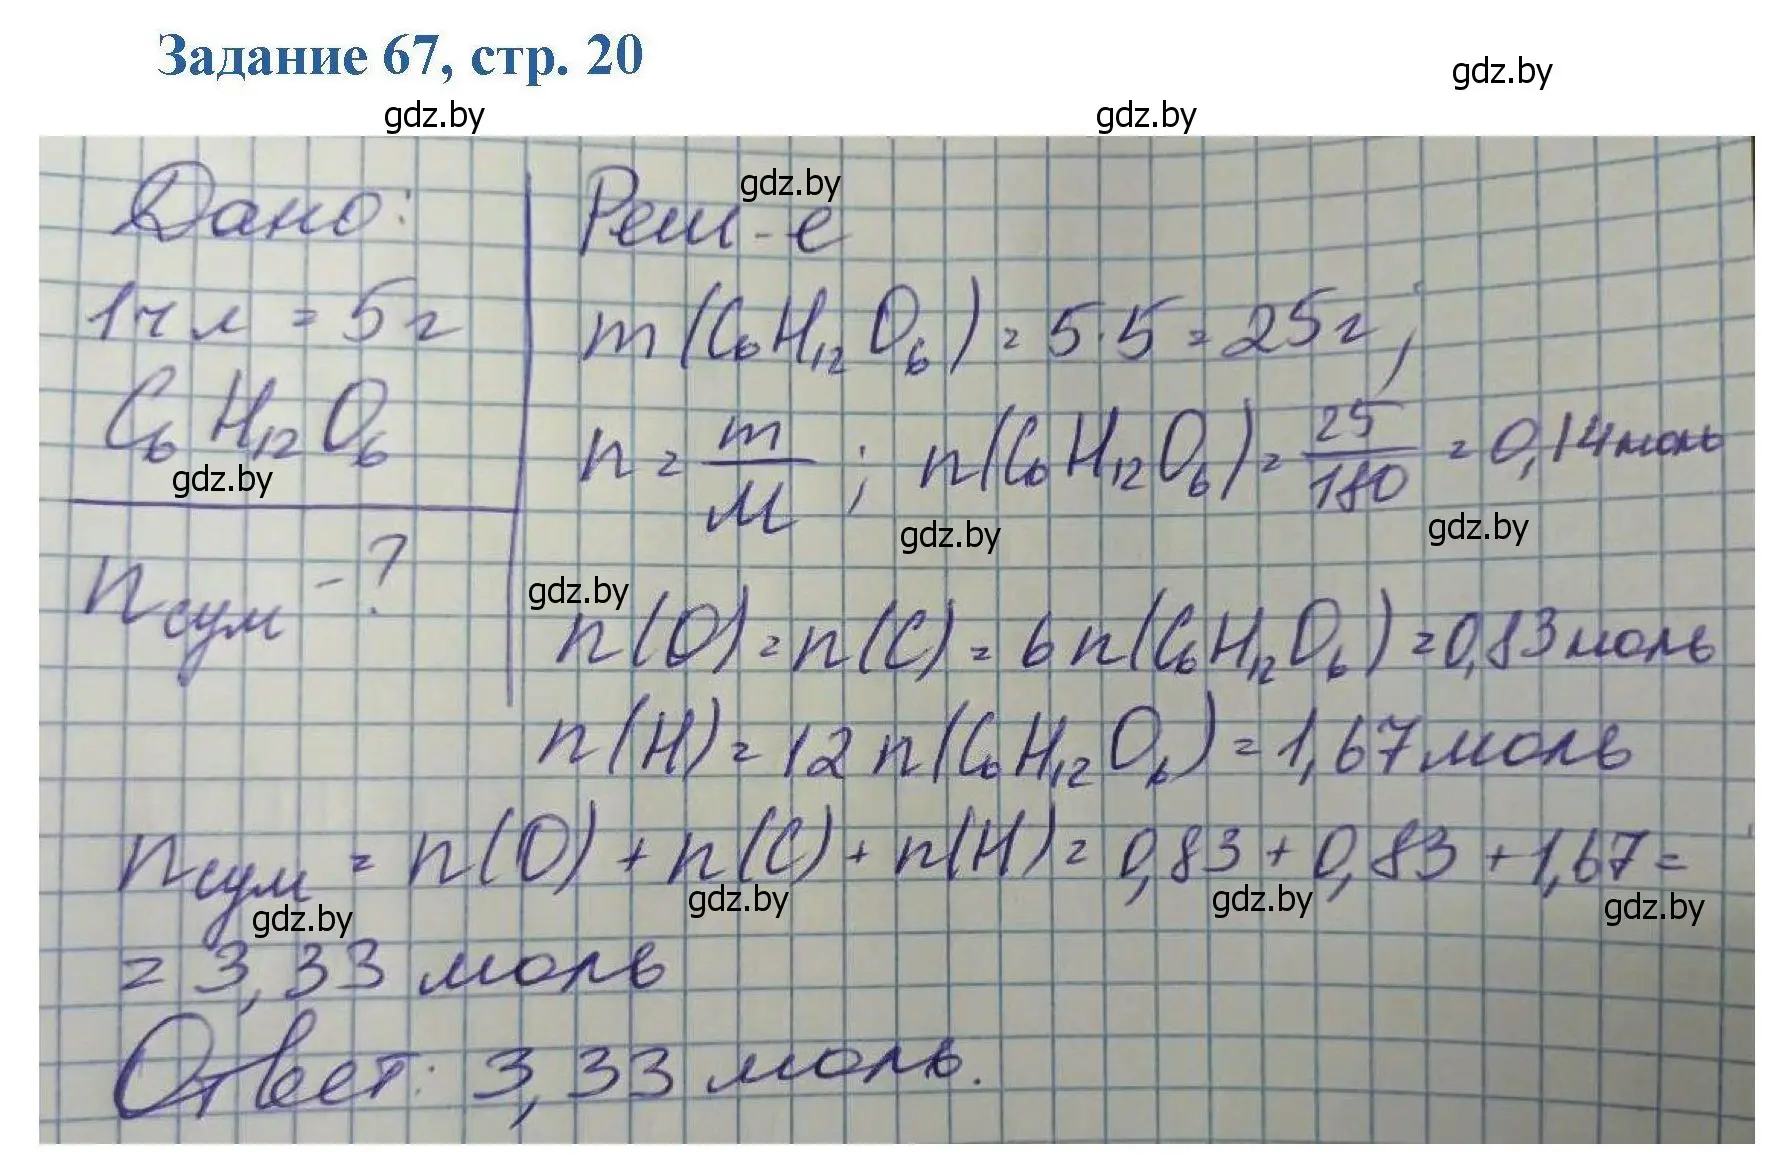 Задание 67, стр. 20
gdz.by
gdz.by
gdz.by
Дано:
1 ч л = 5 г
C₆H₁₂O₆
gdz.by
nсум - ?
Реш-е
gdz.by
m(C₆H₁₂O₆) = 5·5 = 25г;
n = m/M; n(C₆H₁₂O₆) = 25/180 = 0,14 моль
gdz.by
gdz.by
gdz.by
n(O) = n(C) = 6 n(C₆H₁₂O₆) = 0,83 моль
n(H) = 12 n(C₆H₁₂O₆) = 1,67 моль
nсум = n(O) + n(C) + n(H) = 0,83 + 0,83 + 1,67 =
gdz.by
gdz.by
gdz.by
gdz.by
= 3,33 моль
Ответ: 3,33 моль.